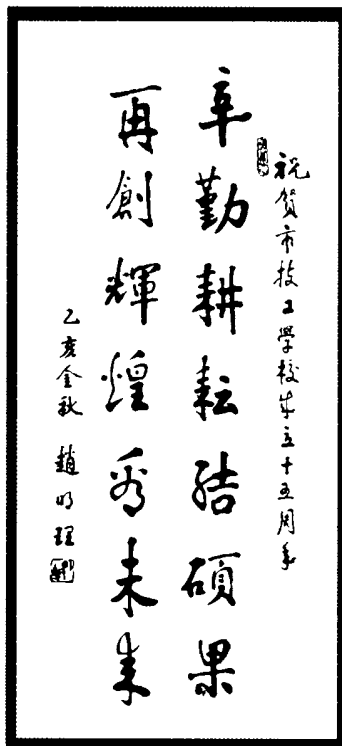 祝贺市技工學校成立十五周年
辛勤耕耘结碩果
再創輝煌看未来
乙亥金秋 趙明理